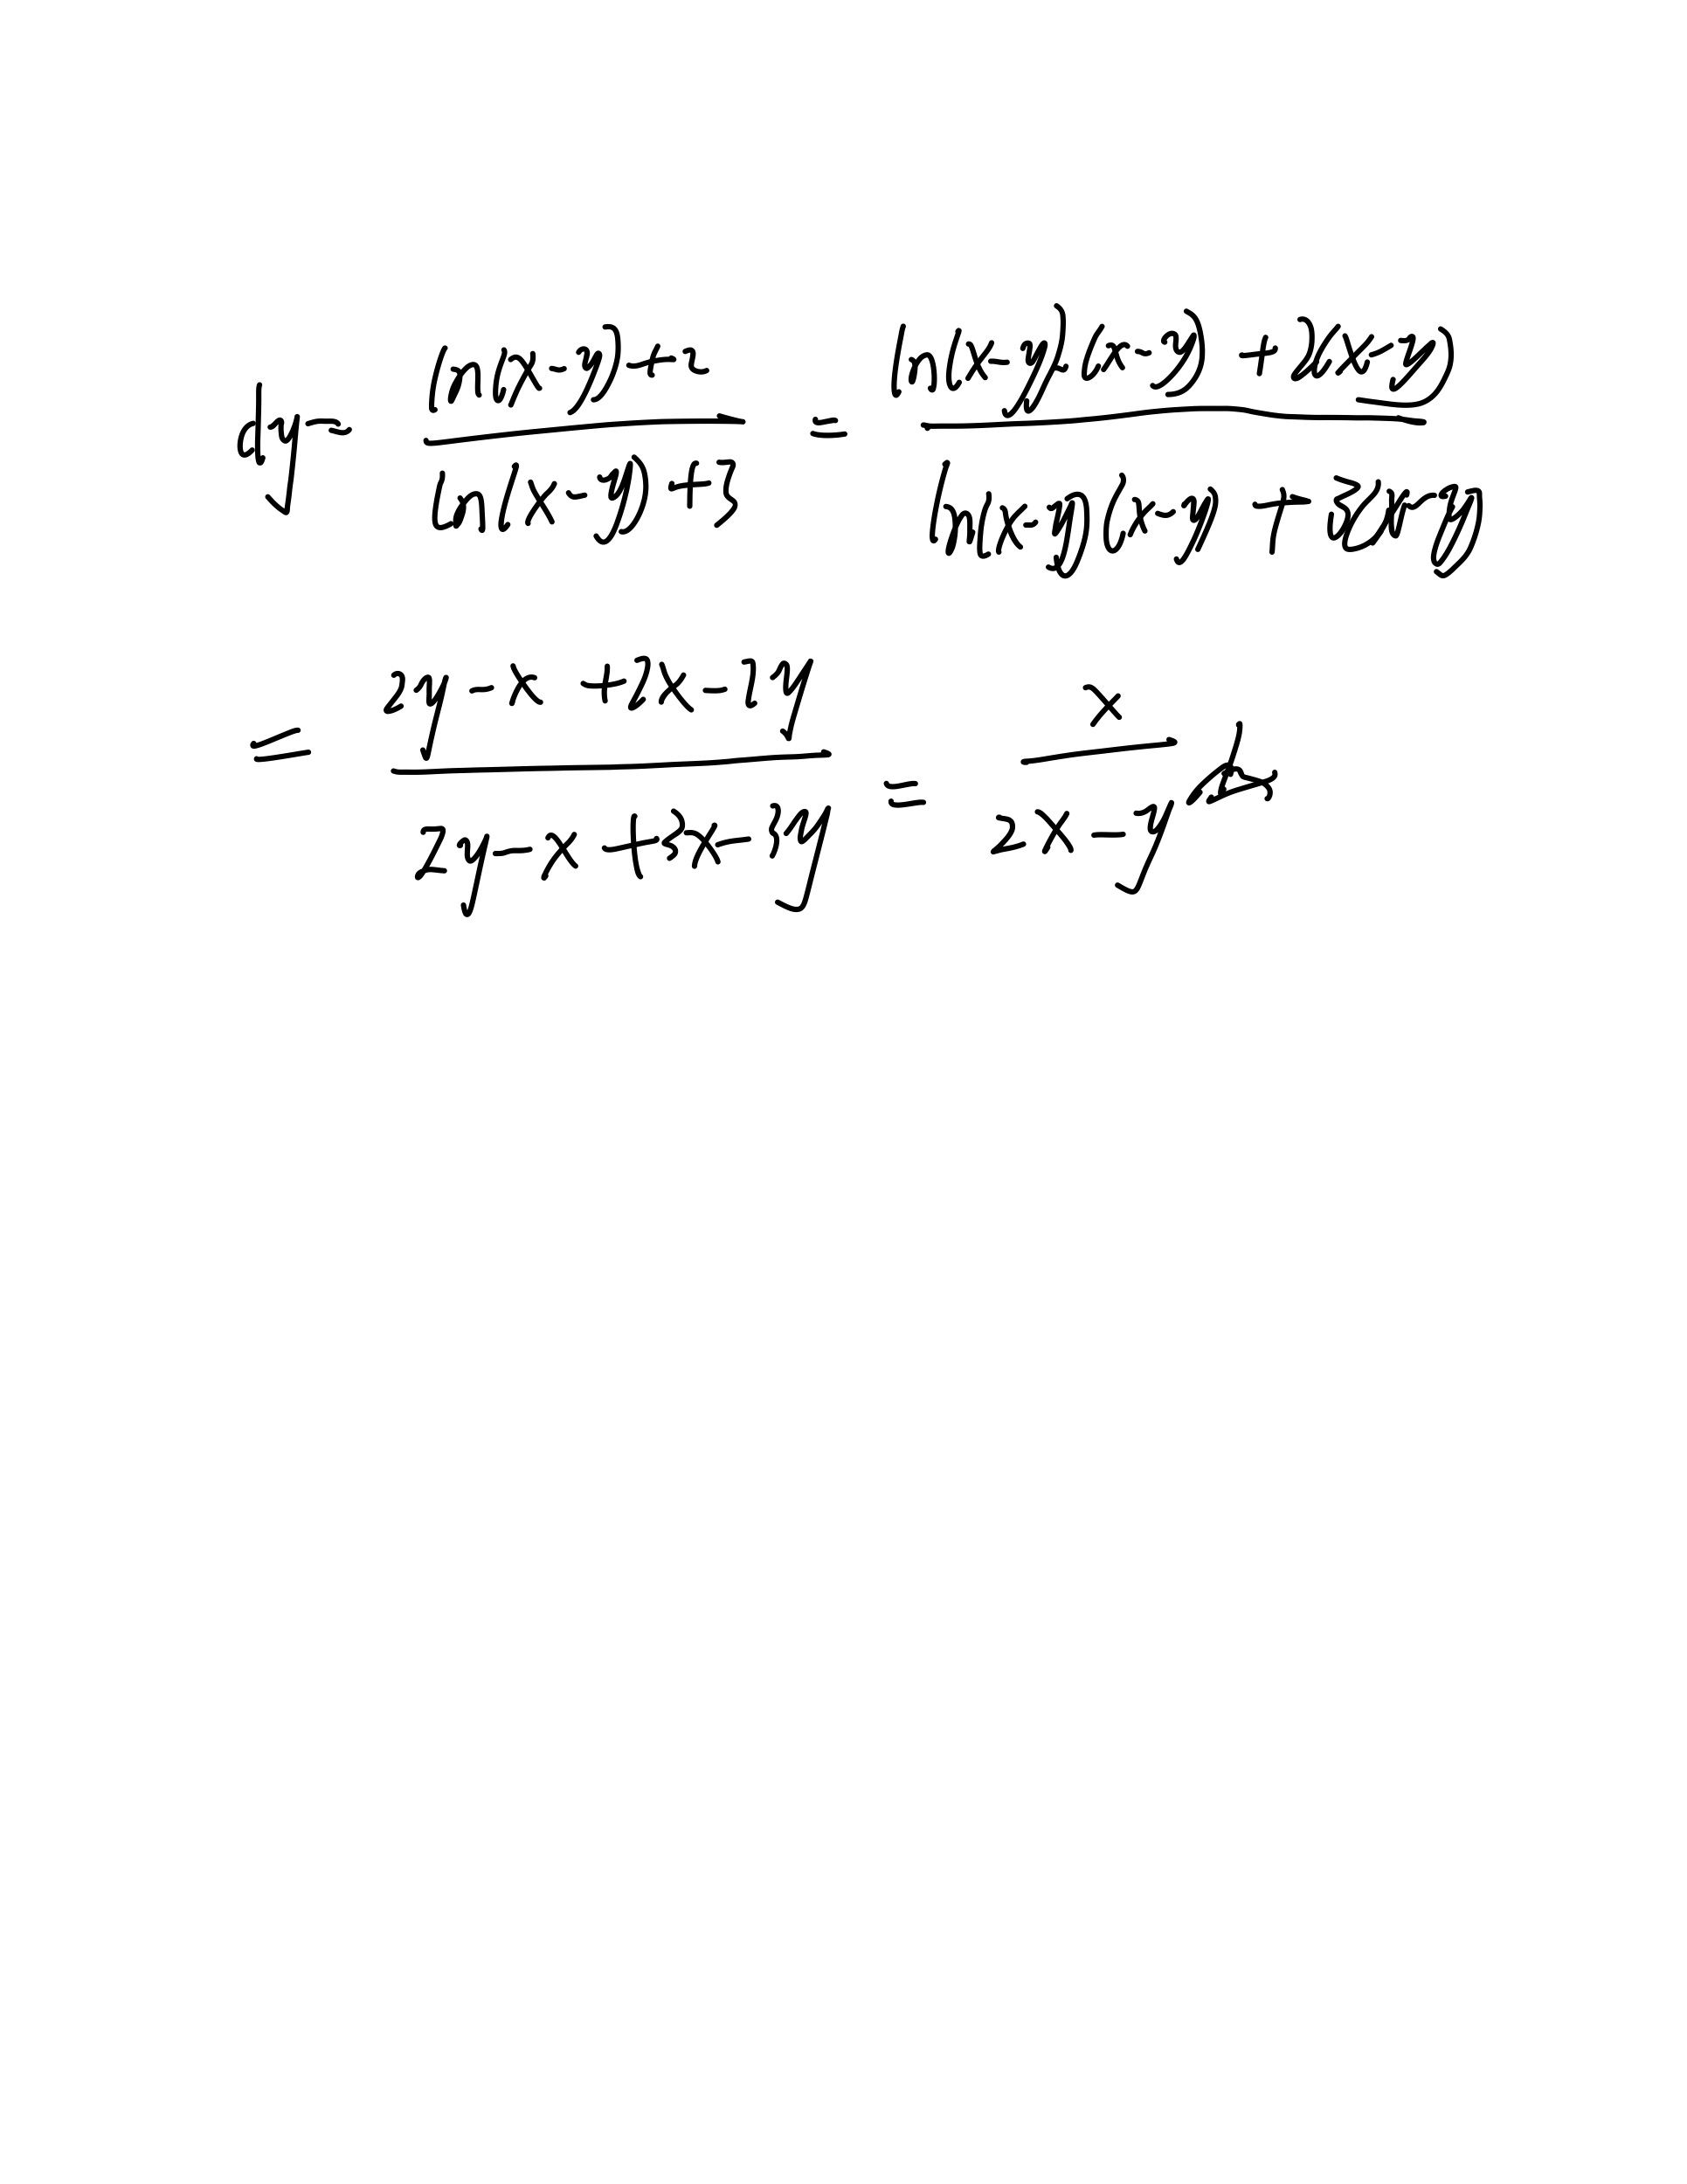 dy = \frac{\ln(x-y)+2}{\ln(x-y)+3} = \frac{\ln(x-y)\cdot(x-y)+2(x-y)}{\ln(x-y)(x-y)+3(x-y)}
= \frac{2y-x+2x-2y}{2y-x+3x-3y} = \frac{x}{2x-y} dx